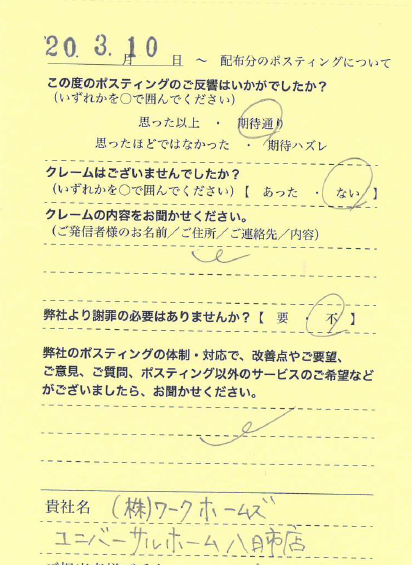 20. 3. 10
月 日 ～ 配布分のポスティングについて
この度のポスティングのご反響はいかがでしたか？
（いずれかを○で囲んでください）
思った以上 ・ 期待通り
思ったほどではなかった ・ 期待ハズレ
クレームはございませんでしたか？
（いずれかを○で囲んでください）【 あった ・ ない 】
クレームの内容をお聞かせください。
（ご発信者様のお名前／ご住所／ご連絡先／内容）
弊社より謝罪の必要はありませんか？【 要 ・ 不 】
弊社のポスティングの体制・対応で、改善点やご要望、
ご意見、ご質問、ポスティング以外のサービスのご希望など
がございましたら、お聞かせください。
貴社名 (株)ワークホームズ
ユニバーサルホーム八日市店